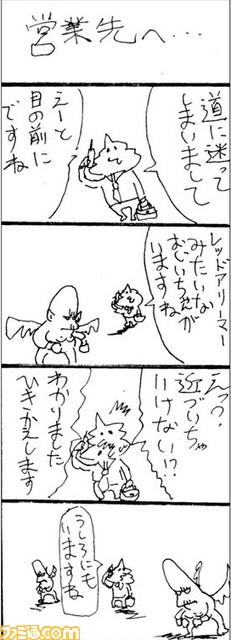 営業先へ…
道に迷って
しまいまして
えーと
目の前に
ですね
レッドアリーマー
みたいな
おじいちゃんが
いますね
えっ?
近づいちゃ
いけない!?
わかりました
ひきかえします
うしろにも
いますね
ファミ通.com